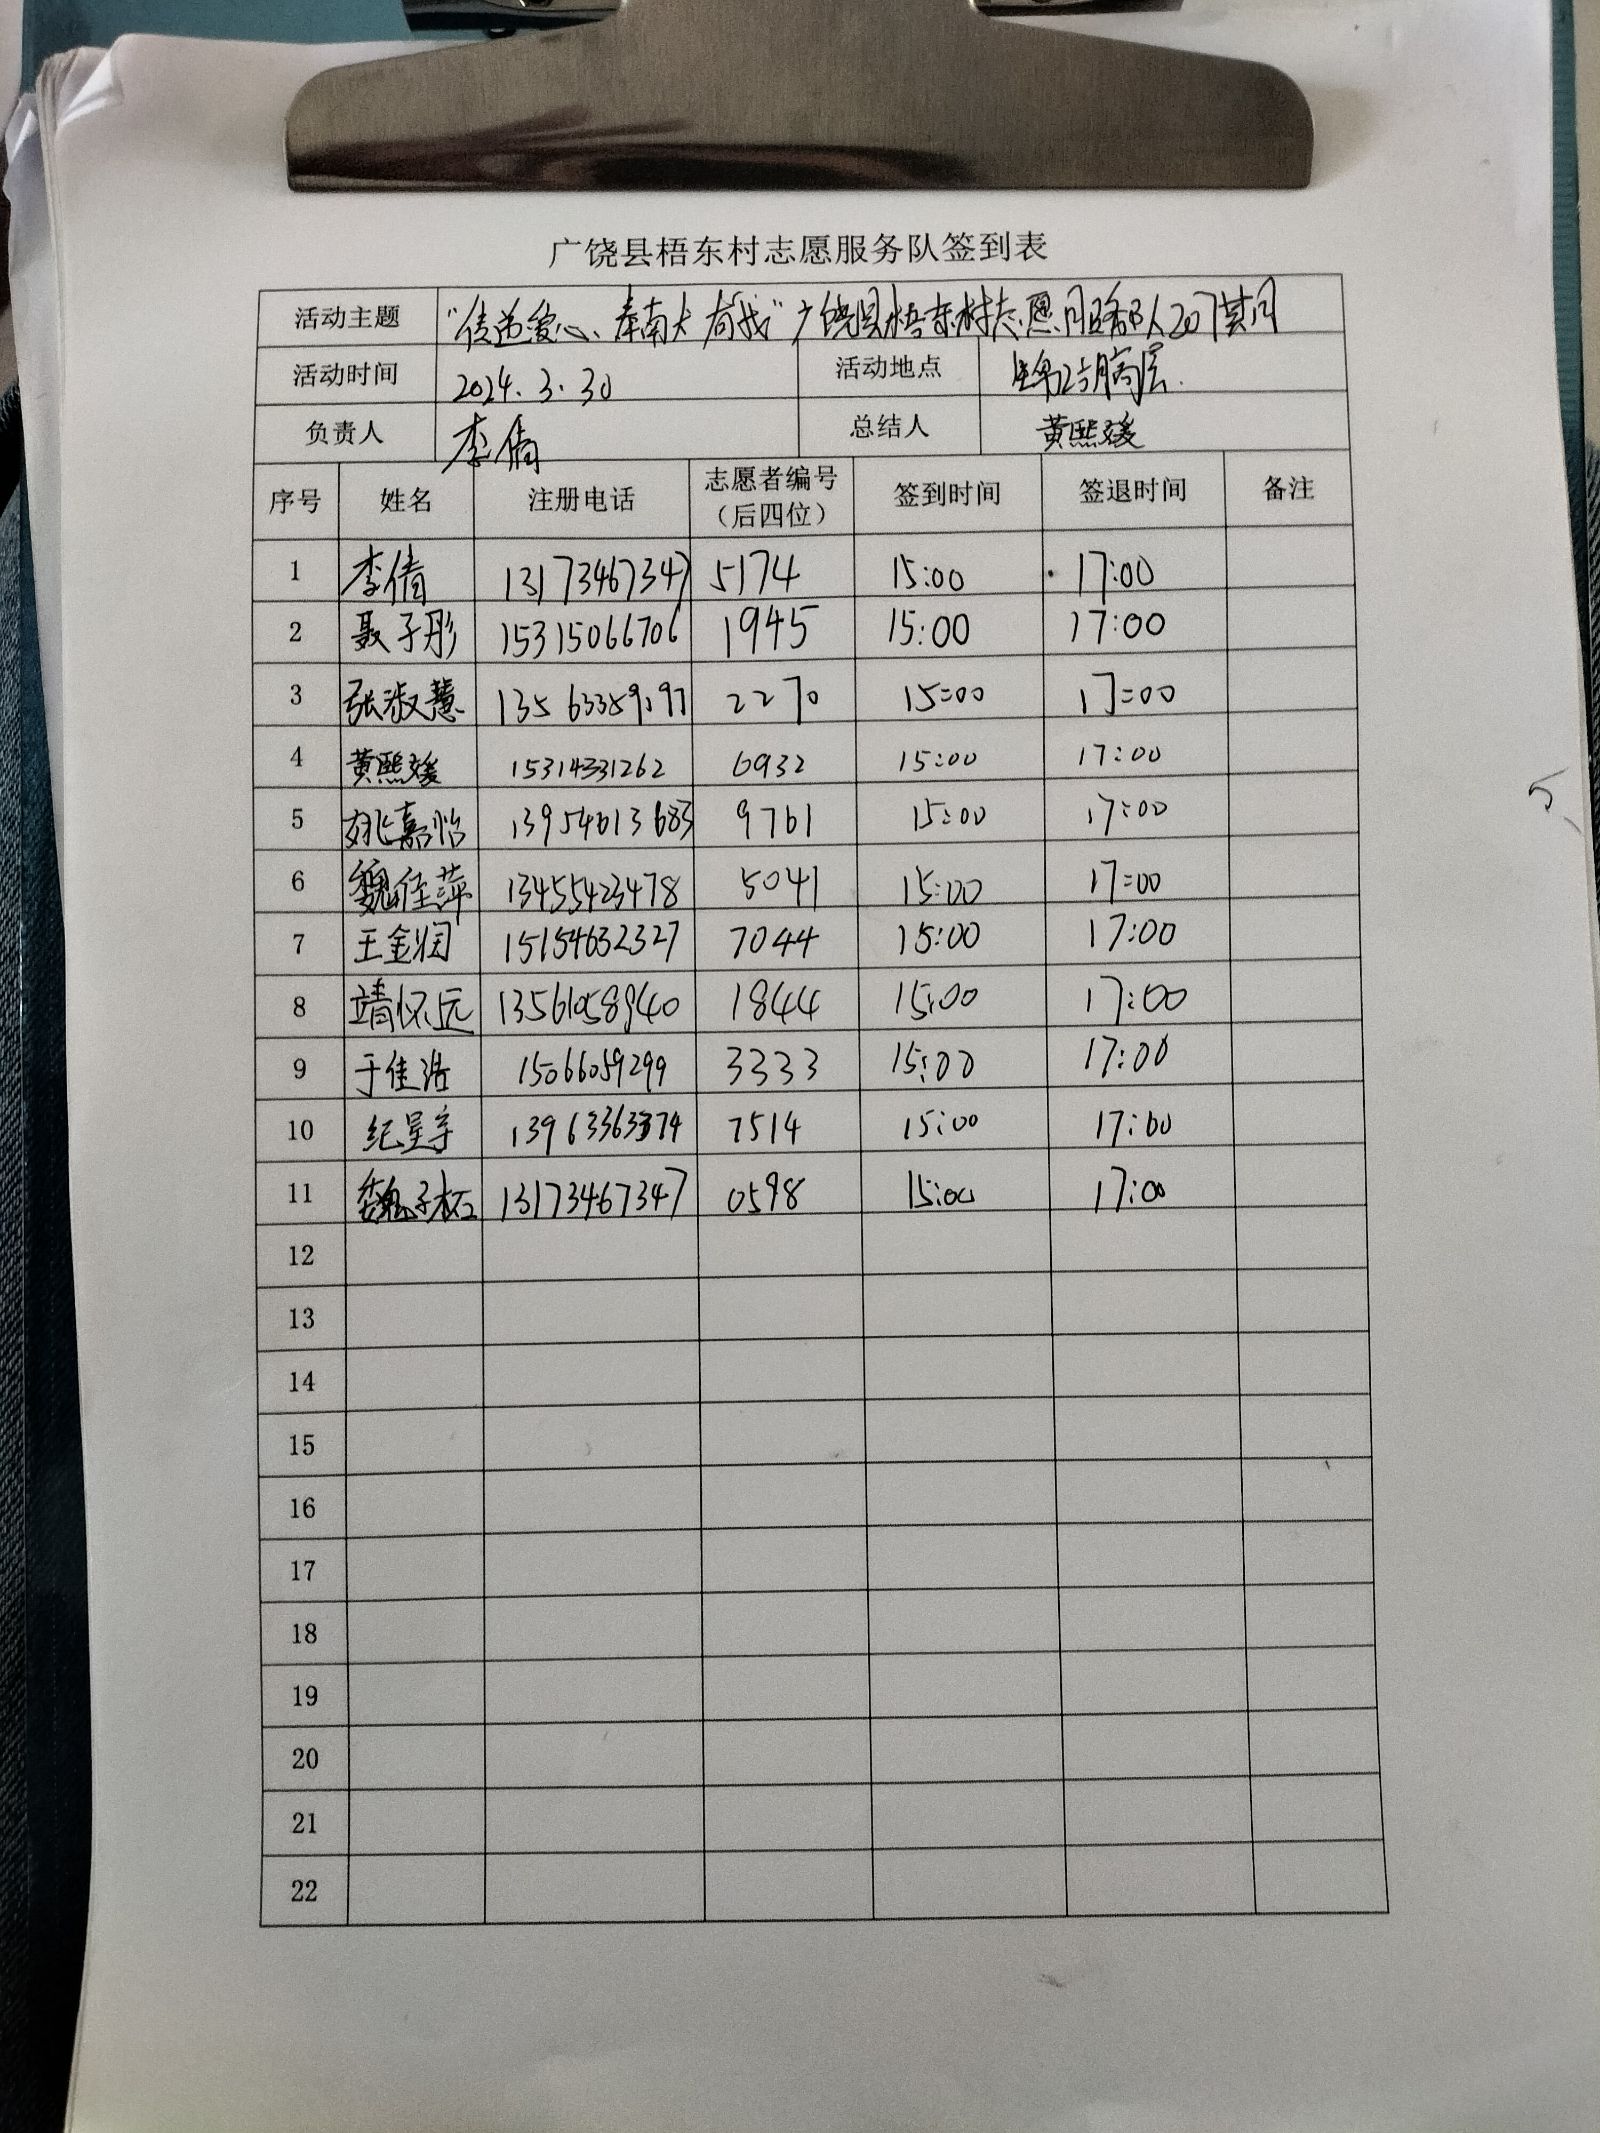 广饶县梧东村志愿服务队签到表
活动主题 "传递爱心、奉南大有我"广饶县梧东村志愿服务队207期
活动时间 2024.3.30 活动地点 高层.
负责人 李倩 总结人 黄熙媛
序号 姓名 注册电话 志愿者编号（后四位） 签到时间 签退时间 备注
1 李倩 13173467347 5174 15:00 17:00
2 聂子彤 15315066706 1945 15:00 17:00
3 张淑慧 2270 15:00 17:00
4 黄熙媛 15314331262 6932 15:00 17:00
5 姚嘉怡 13954613683 9761 15:00 17:00
6 魏佳萍 13455423478 5041 15:00 17:00
7 王金润 15154632327 7044 15:00 17:00
8 靖怀远 13561058940 1844 15:00 17:00
9 于佳浩 15066059299 3333 15:00 17:00
10 纪星宇 13963363374 7514 15:00 17:00
11 魏子柘 13173467347 0598 15:00 17:00
12
13
14
15
16
17
18
19
20
21
22